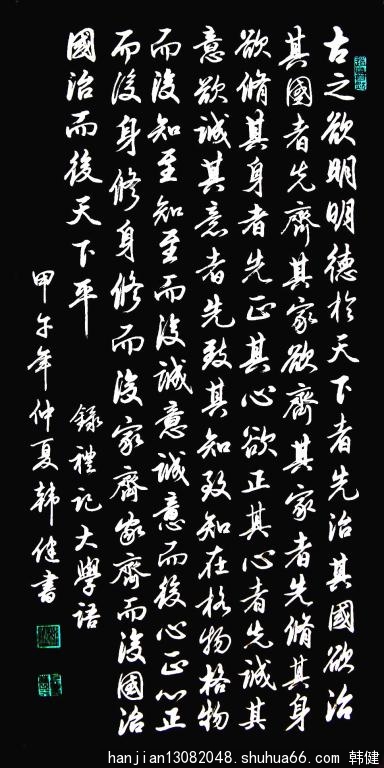 古之欲明明德於天下者先治其國欲治
其國者先齊其家欲齊其家者先脩其身
欲脩其身者先正其心欲正其心者先誠其
意欲誠其意者先致其知致知在格物格物
而後知至知至而後誠意誠意而後心正心正
而後身修身修而後家齊家齊而後國治
國治而後天下平
錄禮記大學語
甲午年仲夏韓健書
hanjian13082048.shuhua66.com 韩健